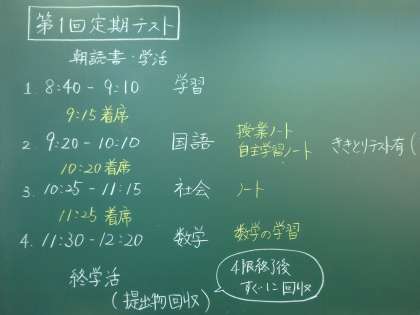 第1回定期テスト
朝読書・学活
1. 8:40 - 9:10 学習
9:15 着席
2. 9:20 - 10:10 国語 授業ノート 自主学習ノート ききとりテスト有(
10:20 着席
3. 10:25 - 11:15 社会 ノート
11:25 着席
4. 11:30 - 12:20 数学 数学の学習
終学活
(提出物回収)
4限終了後
すぐに回収